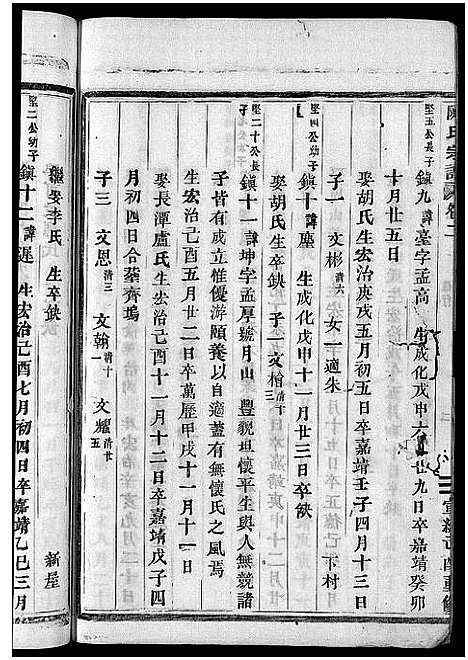 陳氏宗譜 卷二
宣統己酉重修
堅五公長子 鎮九 諱臺字孟高 生成化戊申六月廿九日卒嘉靖癸卯
十月廿五日
娶胡氏生宏治庚戌五月初五日卒嘉靖壬子四月十三日
子一 文彬 清六 女一適朱 下村
堅四公幼子 鎮十 諱塵 生成化戊申十一月廿三日卒缺
娶胡氏生卒缺 子一 文檜 清十三
堅二十公長子 鎮十一 諱坤字孟厚號月山 豐貌坦懷平生與人無競諸
子皆有成立惟優游頤養以自適蓋有無懷氏之風焉
生宏治己酉五月廿二日卒萬歷甲戌十一月十一日
娶長潭盧氏生宏治己酉十一月十二日卒嘉靖戊子四
月初四日合葬齊塢
子三 文恩 清三 文翰 清十一 文燿 清廿五
堅二公幼子 鎮十二 諱遲 生宏治己酉七月初四日卒嘉靖乙巳三月
繼娶李氏 生卒缺 新屋